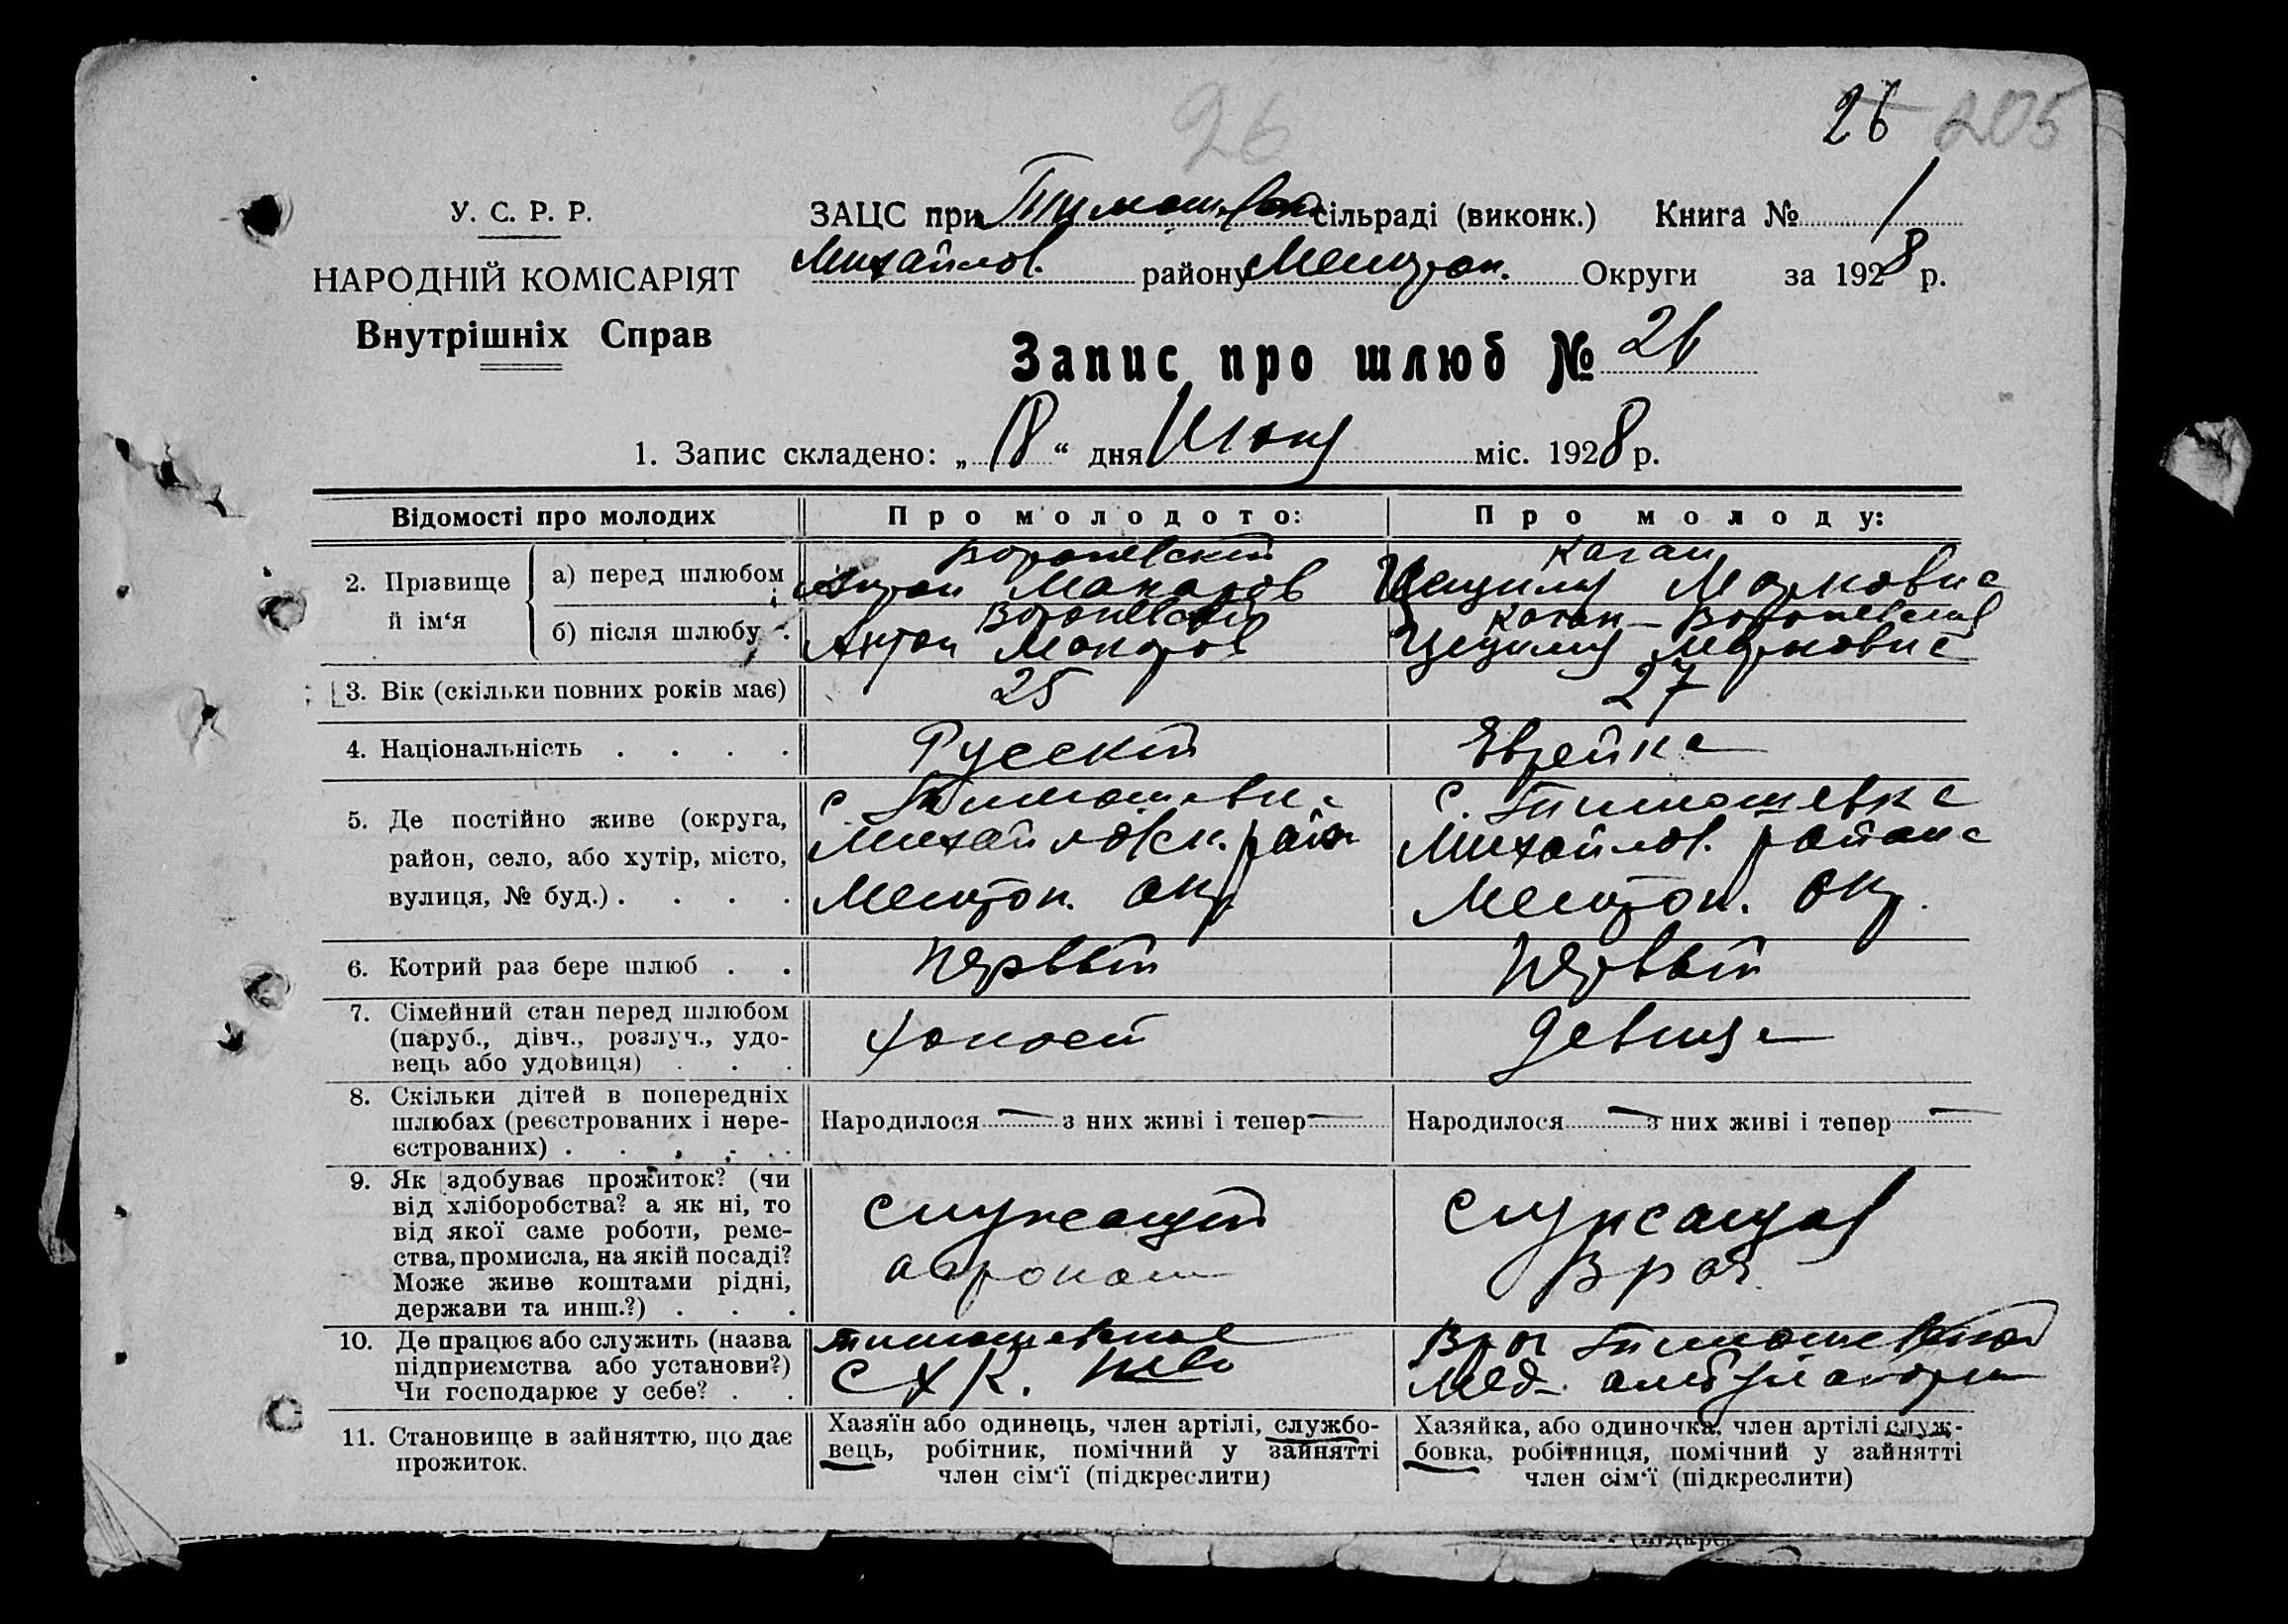 26 26 205
У. С. Р. Р.
НАРОДНІЙ КОМІСАРІЯТ
Внутрішніх Справ
ЗАЦС при Тимошевск сільраді (виконк.) Книга № 1
Михайлов. району Мелитоп. Округи за 1928 р.
Запис про шлюб № 26
1. Запис складено: „ 18 “ дня Июня міс. 1928 р.
Відомості про молодих
Про молодого:
Про молоду:
2. Прізвище й ім‘я
а) перед шлюбом
Антон Макаров
Коган
Цецилия Марковна
б) після шлюбу
Антон Макаров
Коган —
Цецилия Марковна
3. Вік (скільки повних років має)
25
27
4. Національність . . . .
Русскій
Еврейка
5. Де постійно живе (округа,
район, село, або хутір, місто,
вулиця, № буд.) . . . .
с. Тимошевка
Михайловск. район
Мелитоп. окр
с. Тимошевка
Михайлов. района
Мелитоп. окр.
6. Котрий раз бере шлюб . .
первый
первый
7. Сімейний стан перед шлюбом
(паруб., дівч., розлуч., удо-
вець або удовиця) . . .
холост
девица
8. Скільки дітей в попередніх
шлюбах (реєстрованих і нере-
єстрованих) . . . . .
Народилося — з них живі і тепер —
Народилося — з них живі і тепер —
9. Як здобуває прожиток? (чи
від хліборобства? а як ні, то
від якої саме роботи, реме-
ства, промисла, на якій посаді?
Може живе коштами рідні,
держави та инш.?) . . .
служащий
агроном
служащая
Врач
10. Де працює або служить (назва
підприємства або установи?)
Чи господарює у себе? . .
Тимошевское
СХК.
Врач Тимошевской
Мед. амбулатории
11. Становище в зайняттю, що дає
прожиток.
Хазяїн або одинець, член артілі, службо-
вець, робітник, помічний у зайнятті
член сім‘ї (підкреслити)
Хазяйка, або одиночка, член артілі служ-
бовка, робітниця, помічний у зайнятті
член сім‘ї (підкреслити)